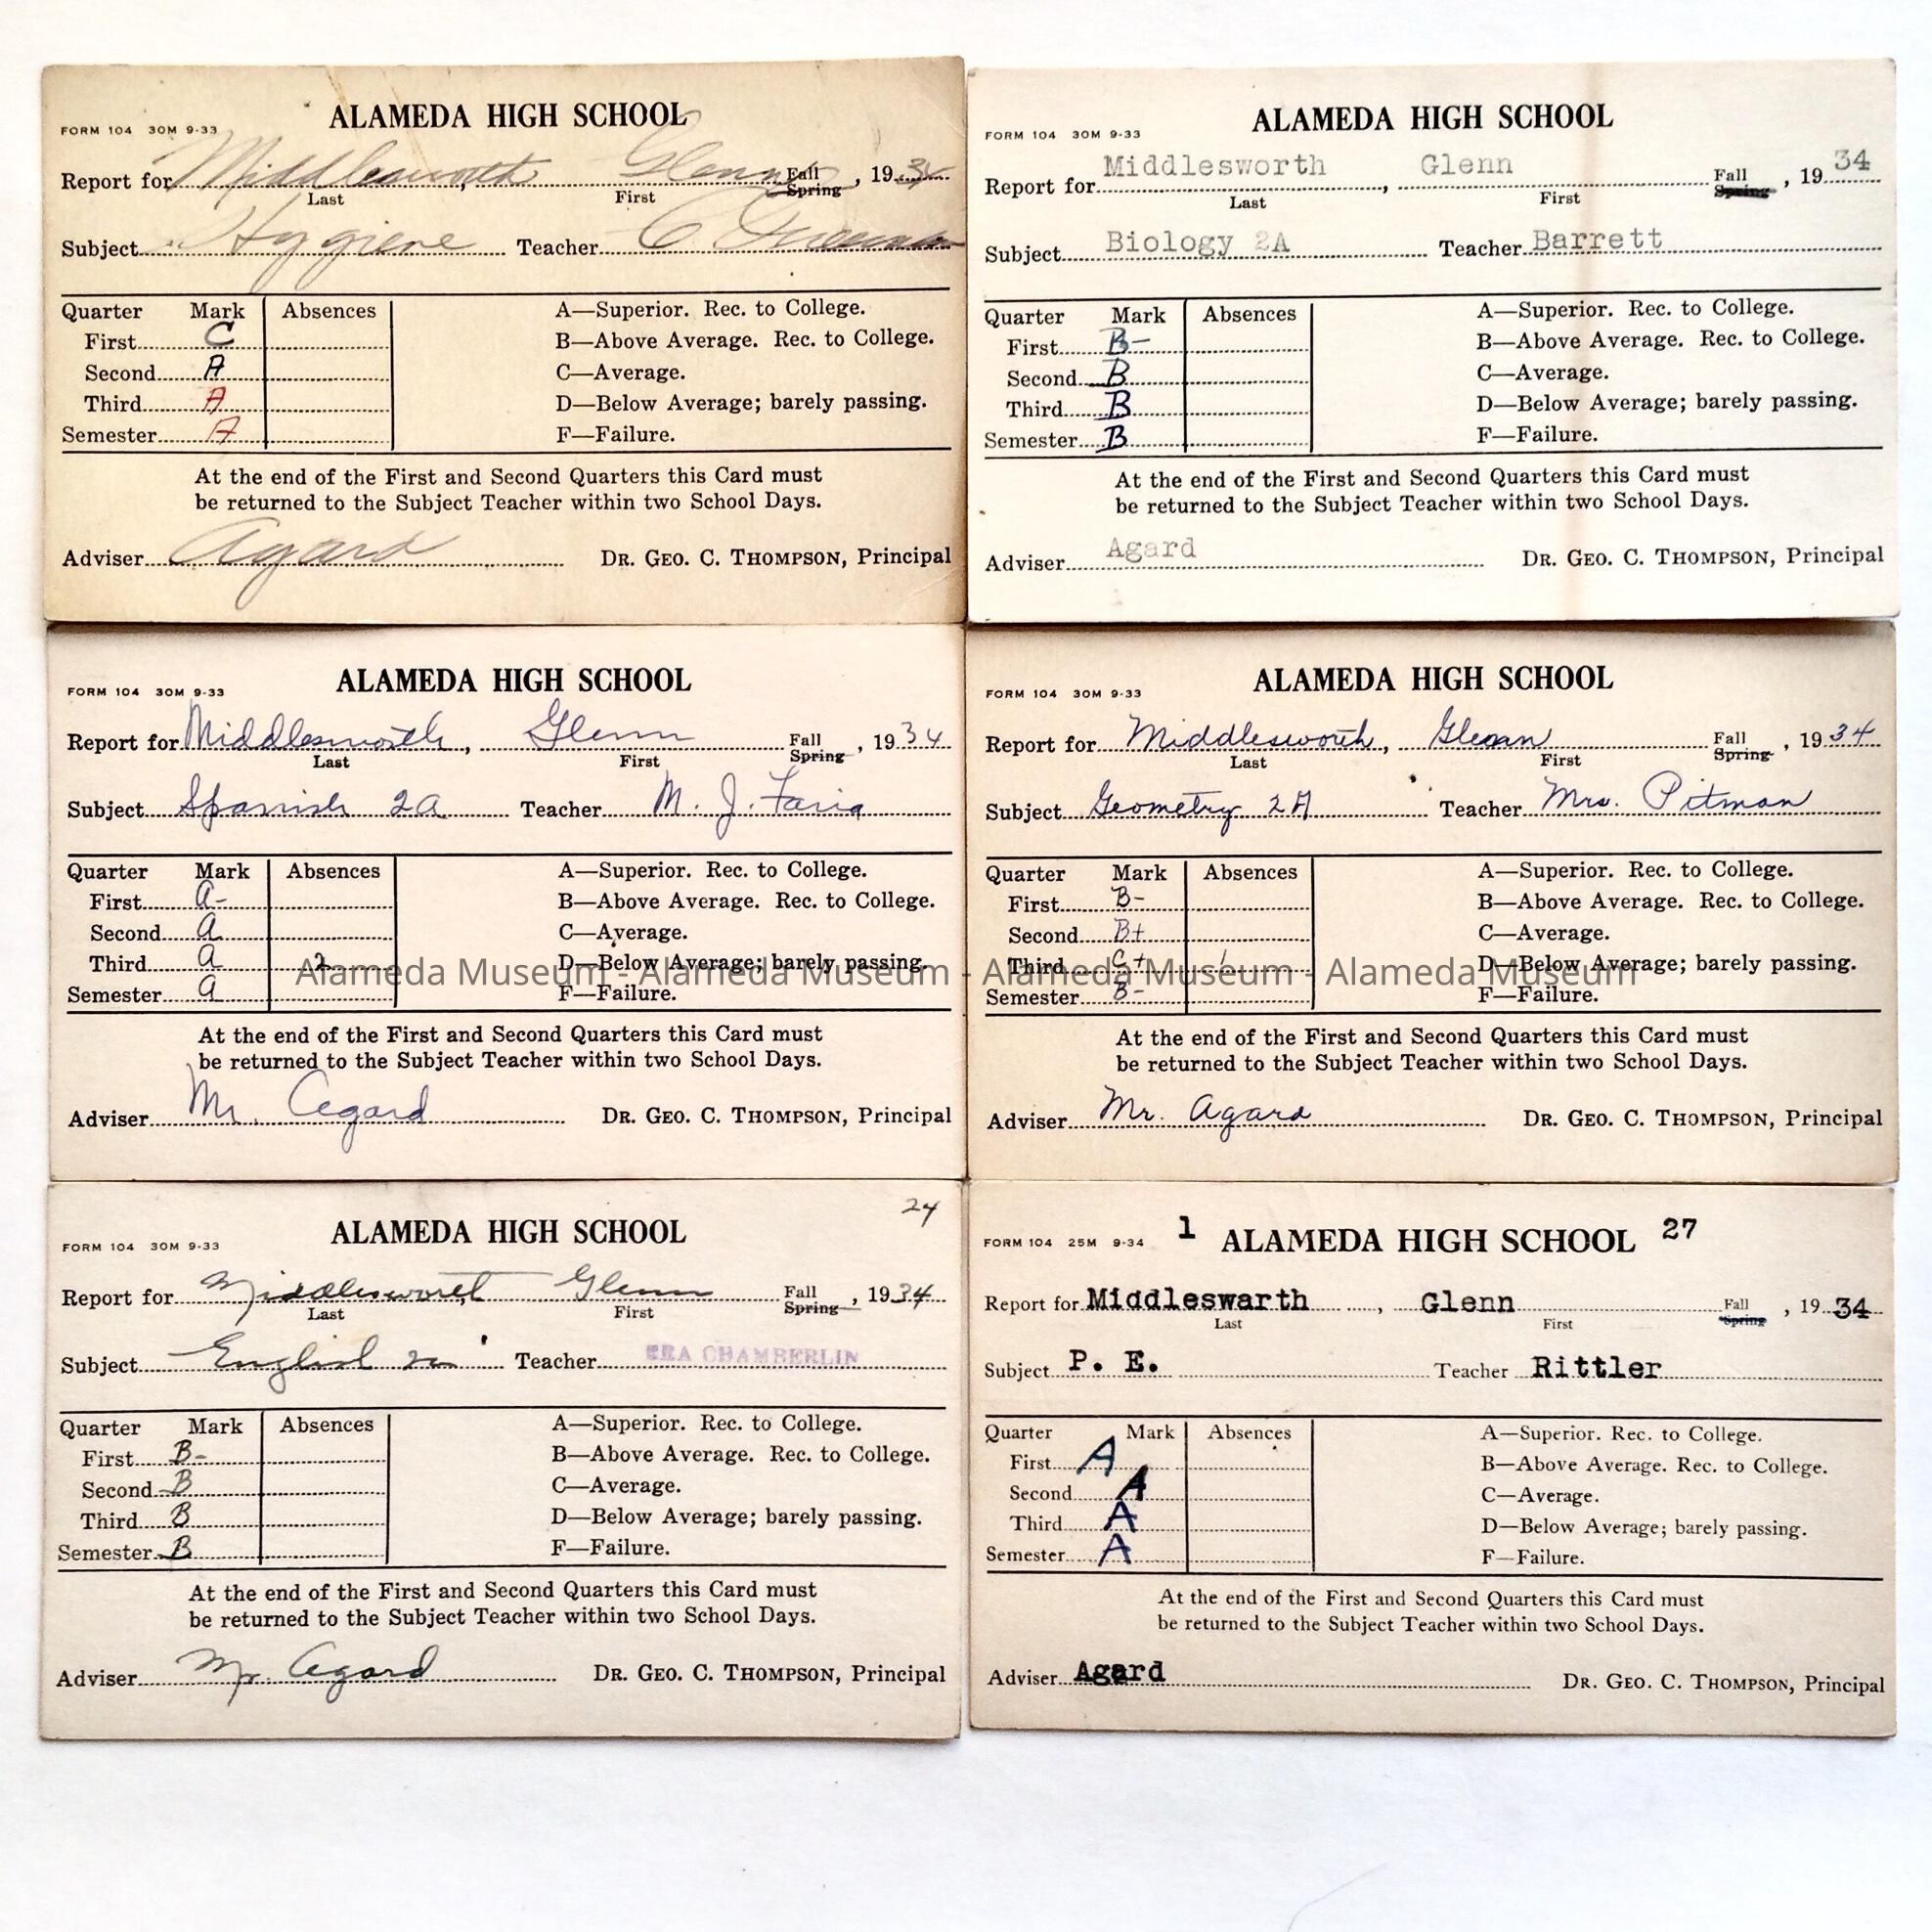 ALAMEDA HIGH SCHOOL
FORM 104 30M 9-33
Report for Middlesworth Glenn Fall Spring, 1934
Last First
Subject Hygiene Teacher C
Quarter Mark Absences A—Superior. Rec. to College.
First C B—Above Average. Rec. to College.
Second A C—Average.
Third A D—Below Average; barely passing.
Semester A F—Failure.
At the end of the First and Second Quarters this Card must
be returned to the Subject Teacher within two School Days.
Adviser Agard DR. GEO. C. THOMPSON, Principal
ALAMEDA HIGH SCHOOL
FORM 104 30M 9-33
Report for Middlesworth, Glenn Fall Spring, 1934
Last First
Subject Biology 2A Teacher Barrett
Quarter Mark Absences A—Superior. Rec. to College.
First B- B—Above Average. Rec. to College.
Second B C—Average.
Third B D—Below Average; barely passing.
Semester B F—Failure.
At the end of the First and Second Quarters this Card must
be returned to the Subject Teacher within two School Days.
Adviser Agard DR. GEO. C. THOMPSON, Principal
ALAMEDA HIGH SCHOOL
FORM 104 30M 9-33
Report for Middlesworth, Glenn Fall Spring, 1934
Last First
Subject Spanish 2a Teacher M. J. Faria
Quarter Mark Absences A—Superior. Rec. to College.
First A- B—Above Average. Rec. to College.
Second A C—Average.
Third A 2 D—Below Average; barely passing.
Semester A F—Failure.
At the end of the First and Second Quarters this Card must
be returned to the Subject Teacher within two School Days.
Adviser Mr. Agard DR. GEO. C. THOMPSON, Principal
ALAMEDA HIGH SCHOOL
FORM 104 30M 9-33
Report for Middlesworth, Glenn Fall Spring, 1934
Last First
Subject Geometry 2A Teacher Mrs. Pitman
Quarter Mark Absences A—Superior. Rec. to College.
First B- B—Above Average. Rec. to College.
Second B+ C—Average.
Third C+ 1 D—Below Average; barely passing.
Semester B- F—Failure.
At the end of the First and Second Quarters this Card must
be returned to the Subject Teacher within two School Days.
Adviser Mr. Agard DR. GEO. C. THOMPSON, Principal
Alameda Museum - Alameda Museum - Alameda Museum - Alameda Museum
24
ALAMEDA HIGH SCHOOL
FORM 104 30M 9-33
Report for Middlesworth Glenn Fall Spring, 1934
Last First
Subject English Teacher ERA CHAMBERLIN
Quarter Mark Absences A—Superior. Rec. to College.
First B- B—Above Average. Rec. to College.
Second B C—Average.
Third B D—Below Average; barely passing.
Semester B F—Failure.
At the end of the First and Second Quarters this Card must
be returned to the Subject Teacher within two School Days.
Adviser Mr. Agard DR. GEO. C. THOMPSON, Principal
1 ALAMEDA HIGH SCHOOL 27
FORM 104 25M 9-34
Report for Middleswarth, Glenn Fall Spring, 1934
Last First
Subject P. E. Teacher Rittler
Quarter Mark Absences A—Superior. Rec. to College.
First A B—Above Average. Rec. to College.
Second A C—Average.
Third A D—Below Average; barely passing.
Semester A F—Failure.
At the end of the First and Second Quarters this Card must
be returned to the Subject Teacher within two School Days.
Adviser Agard DR. GEO. C. THOMPSON, Principal